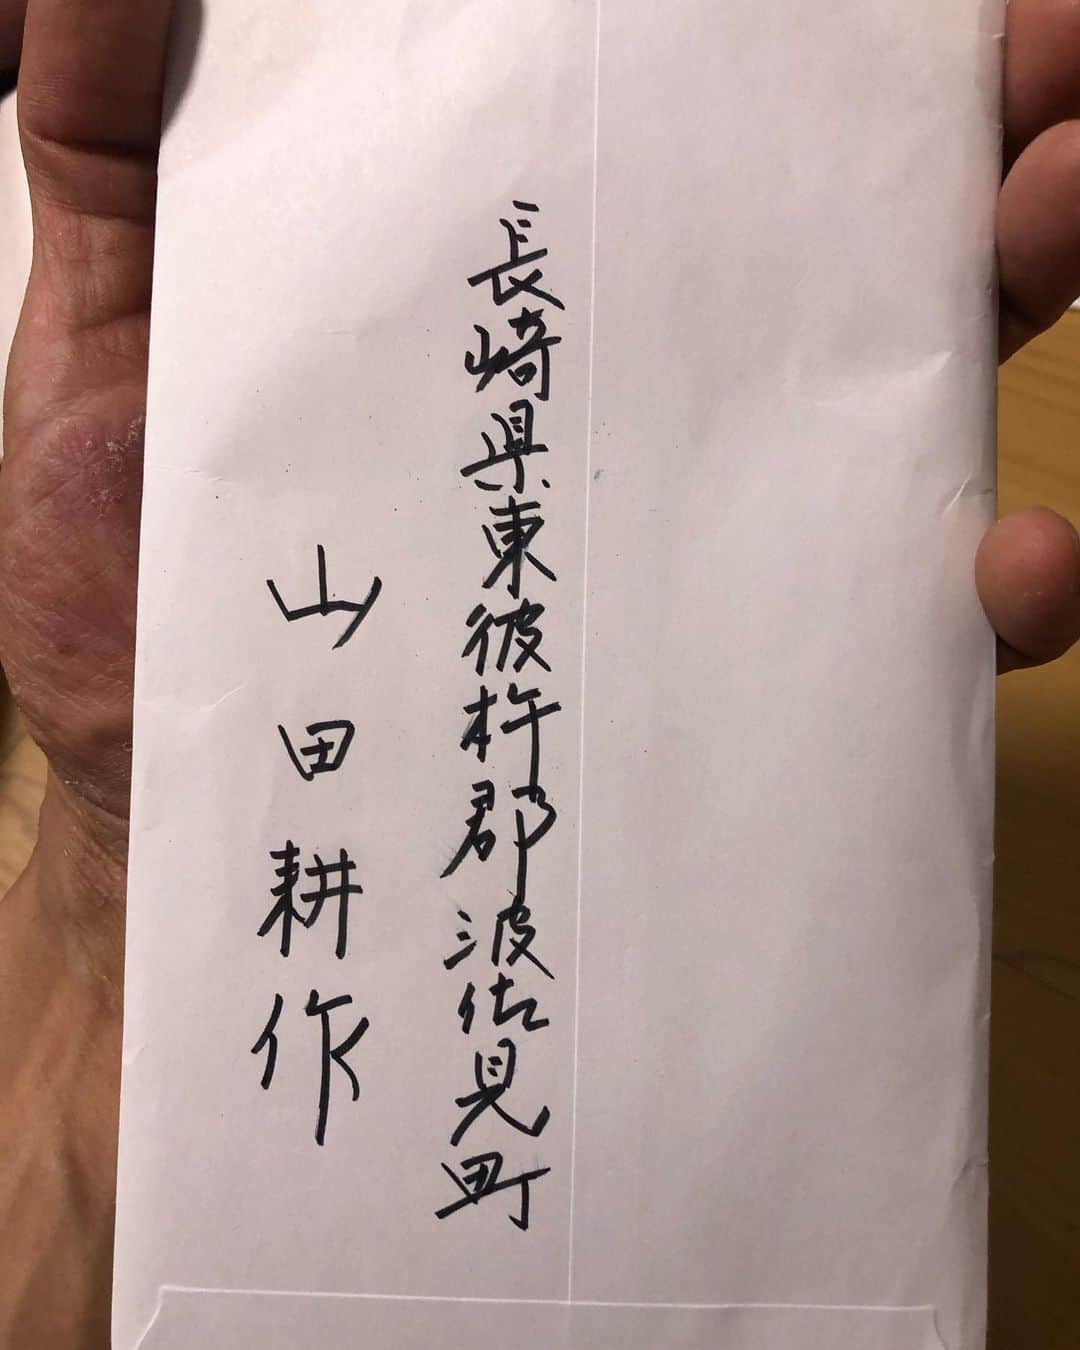 長崎県東彼杵郡波佐見町
山田耕作